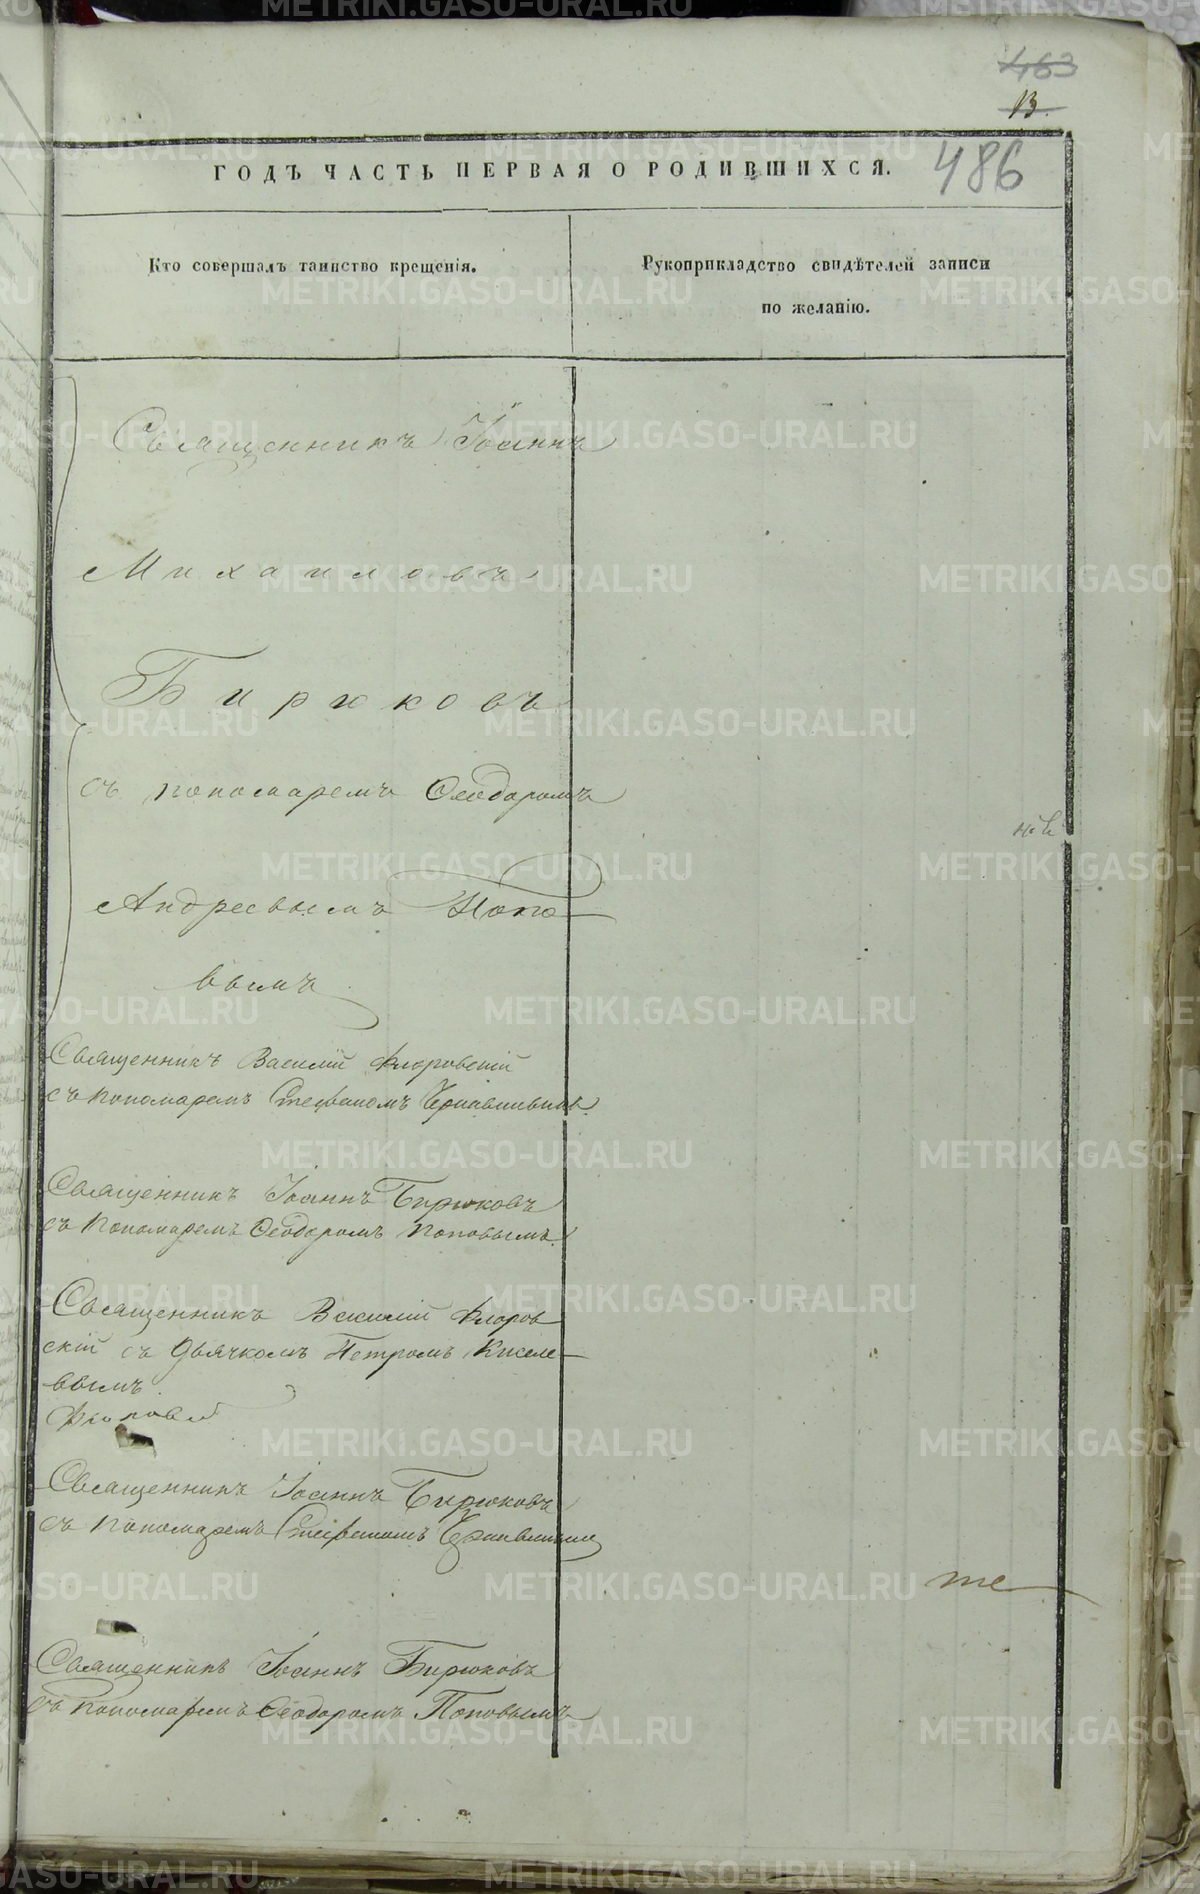 463
13.
486
ГОДЪ ЧАСТЬ ПЕРВАЯ О РОДИВШИХСЯ.
Кто совершалъ таинство крещенія.
Рукоприкладство свидѣтелей записи
по желанію.
Священникъ Іоаннъ
Михаиловъ
Бирюковъ
съ пономаремъ Ѳеодоромъ
Андреевымъ Попо
вымъ
Священникъ Василій Флоровскій
съ пономаремъ Стефаномъ
Священникъ Іоаннъ Бирюковъ
съ пономаремъ Ѳеодоромъ Поповымъ
Священникъ Василій Флоров
скій съ Дьячкомъ Петромъ Киселе
вымъ.
Священникъ Іоаннъ Бирюковъ
съ пономаремъ Стефаномъ
те
Священникъ Іоаннъ Бирюковъ
съ пономаремъ Ѳеодоромъ Поповымъ
METRIKI.GASO-URAL.RU